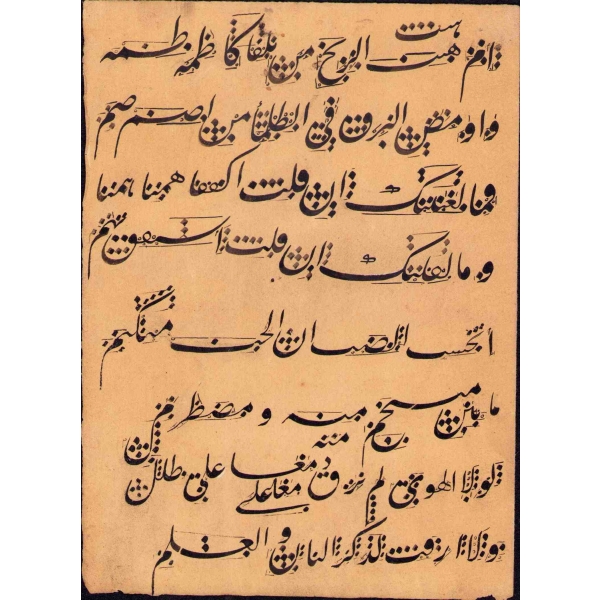 هبت
ام هبت الريح من تلقا كاظمة ظمة
واومض البرق في الظلما من اضم ضم
فما لعينيك ان قلت اكففا همتا همتا
و ما لقلبك ان قلت استفق يهم
أيحسب الصب ان الحب منكتم
ما بين منسجم منه و مضطرم
منه
لولا الهوى لم ترق دمعا على طلل
معا على
ولا ارقت لذكر البان و العلم